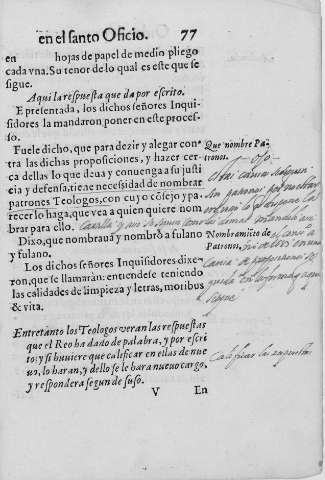 en el santo Oficio. 77
en hojas de papel de medio pliego
cada vna. Su tenor de lo qual es este que se
sigue.
Aqui la respuesta que da por escrito.
E presentada, los dichos señores Inqui-
sidores la mandaron poner en este proces-
so.
Fuele dicho, que para dezir y alegar con-
tra las dichas proposiciones, y hazer cer-
ca dellas lo que deua y conuenga a su jus-
ticia y defensa, tiene necessidad de nombrar
patrones Teologos, con cuyo cõsejo y pa-
recer lo haga, que vea a quien quiere nom
brar para ello.
Dixo, que nombraua y nombrò a fulano
y fulano.
Los dichos señores Inquisidores dixe-
ron, que se llamaràn: entiendese teniendo
las calidades de limpieza y letras, moribus
& vita.
Que nombre Pa-
trones.
Nombramiẽto de
Patrones.
Entretanto los Teologos veran las respuestas
que el Reo ha dado de palabra, y por escri
to: y si huuiere que calificar en ellas de nue
uo, lo haran, y dello se le hara nueuo cargo,
y respondera segun de suso.
Calificar las respuestas
V En